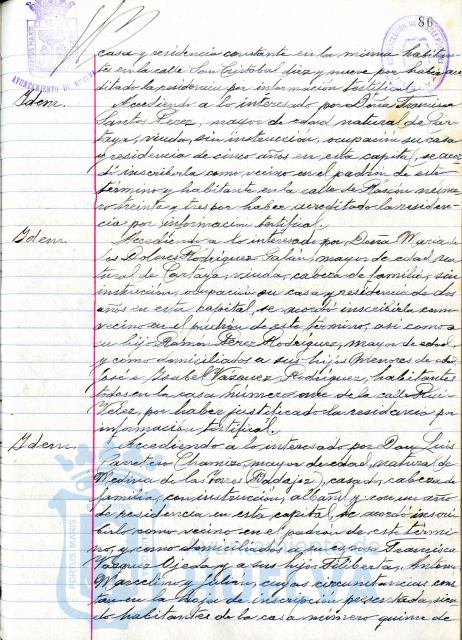 86
casa y residencia constante en la misma habitan-
tes en la calle San Cristobal diez y nueve por haber acre-
ditado la residencia por información testifical.
Idem. Accediendo a lo interesado por Doña Francisca
Santos Perez, mayor de edad, natural de Car-
taya, viuda, sin instrucción, ocupación su casa
y residencia de cinco años en esta capital, se acor-
dó inscribirla como vecino en el padrón de este
término y habitante en la calle de Rascón núme-
ro treinta y tres por haber acreditado la residen-
cia por información testifical.
Idem. Accediendo a lo interesado por Doña Maria de
los Dolores Rodríguez Galán, mayor de edad, na-
tural de Cartaya, viuda, cabeza de familia, sin
instrucción, ocupación su casa y residencia de dos
años en esta capital, se acordó inscribirla como
vecino en el padrón de este término, así como a
su hijo Ramón Perez Rodríguez, mayor de edad
y como domiciliados a sus hijos Menores de edad
José e Isabel Vázquez Rodríguez, habitantes
todos en la casa número nueve de la calle Rui-
Velez, por haber justificado la residencia por
información testifical.
Idem. Accediendo a lo interesado por Don Luis
Carretero Chamizo, mayor de edad, natural de
Medina de las Torres (Badajoz), casado, cabeza de
familia, con instrucción, albañil y con un año
de residencia en esta capital, se acordó inscri-
birlo como vecino en el padrón de este térmi-
no, y como domiciliados a su esposa Francisca
Vázquez Ojeda y a sus hijos Filiberta, Antonio
Marcelino y Julián, cuyas circunstancias cons-
tan en la hoja de inscripción presentada, sien-
do habitantes de la casa número quince de
PORTUS MARIS
Ayuntamiento de